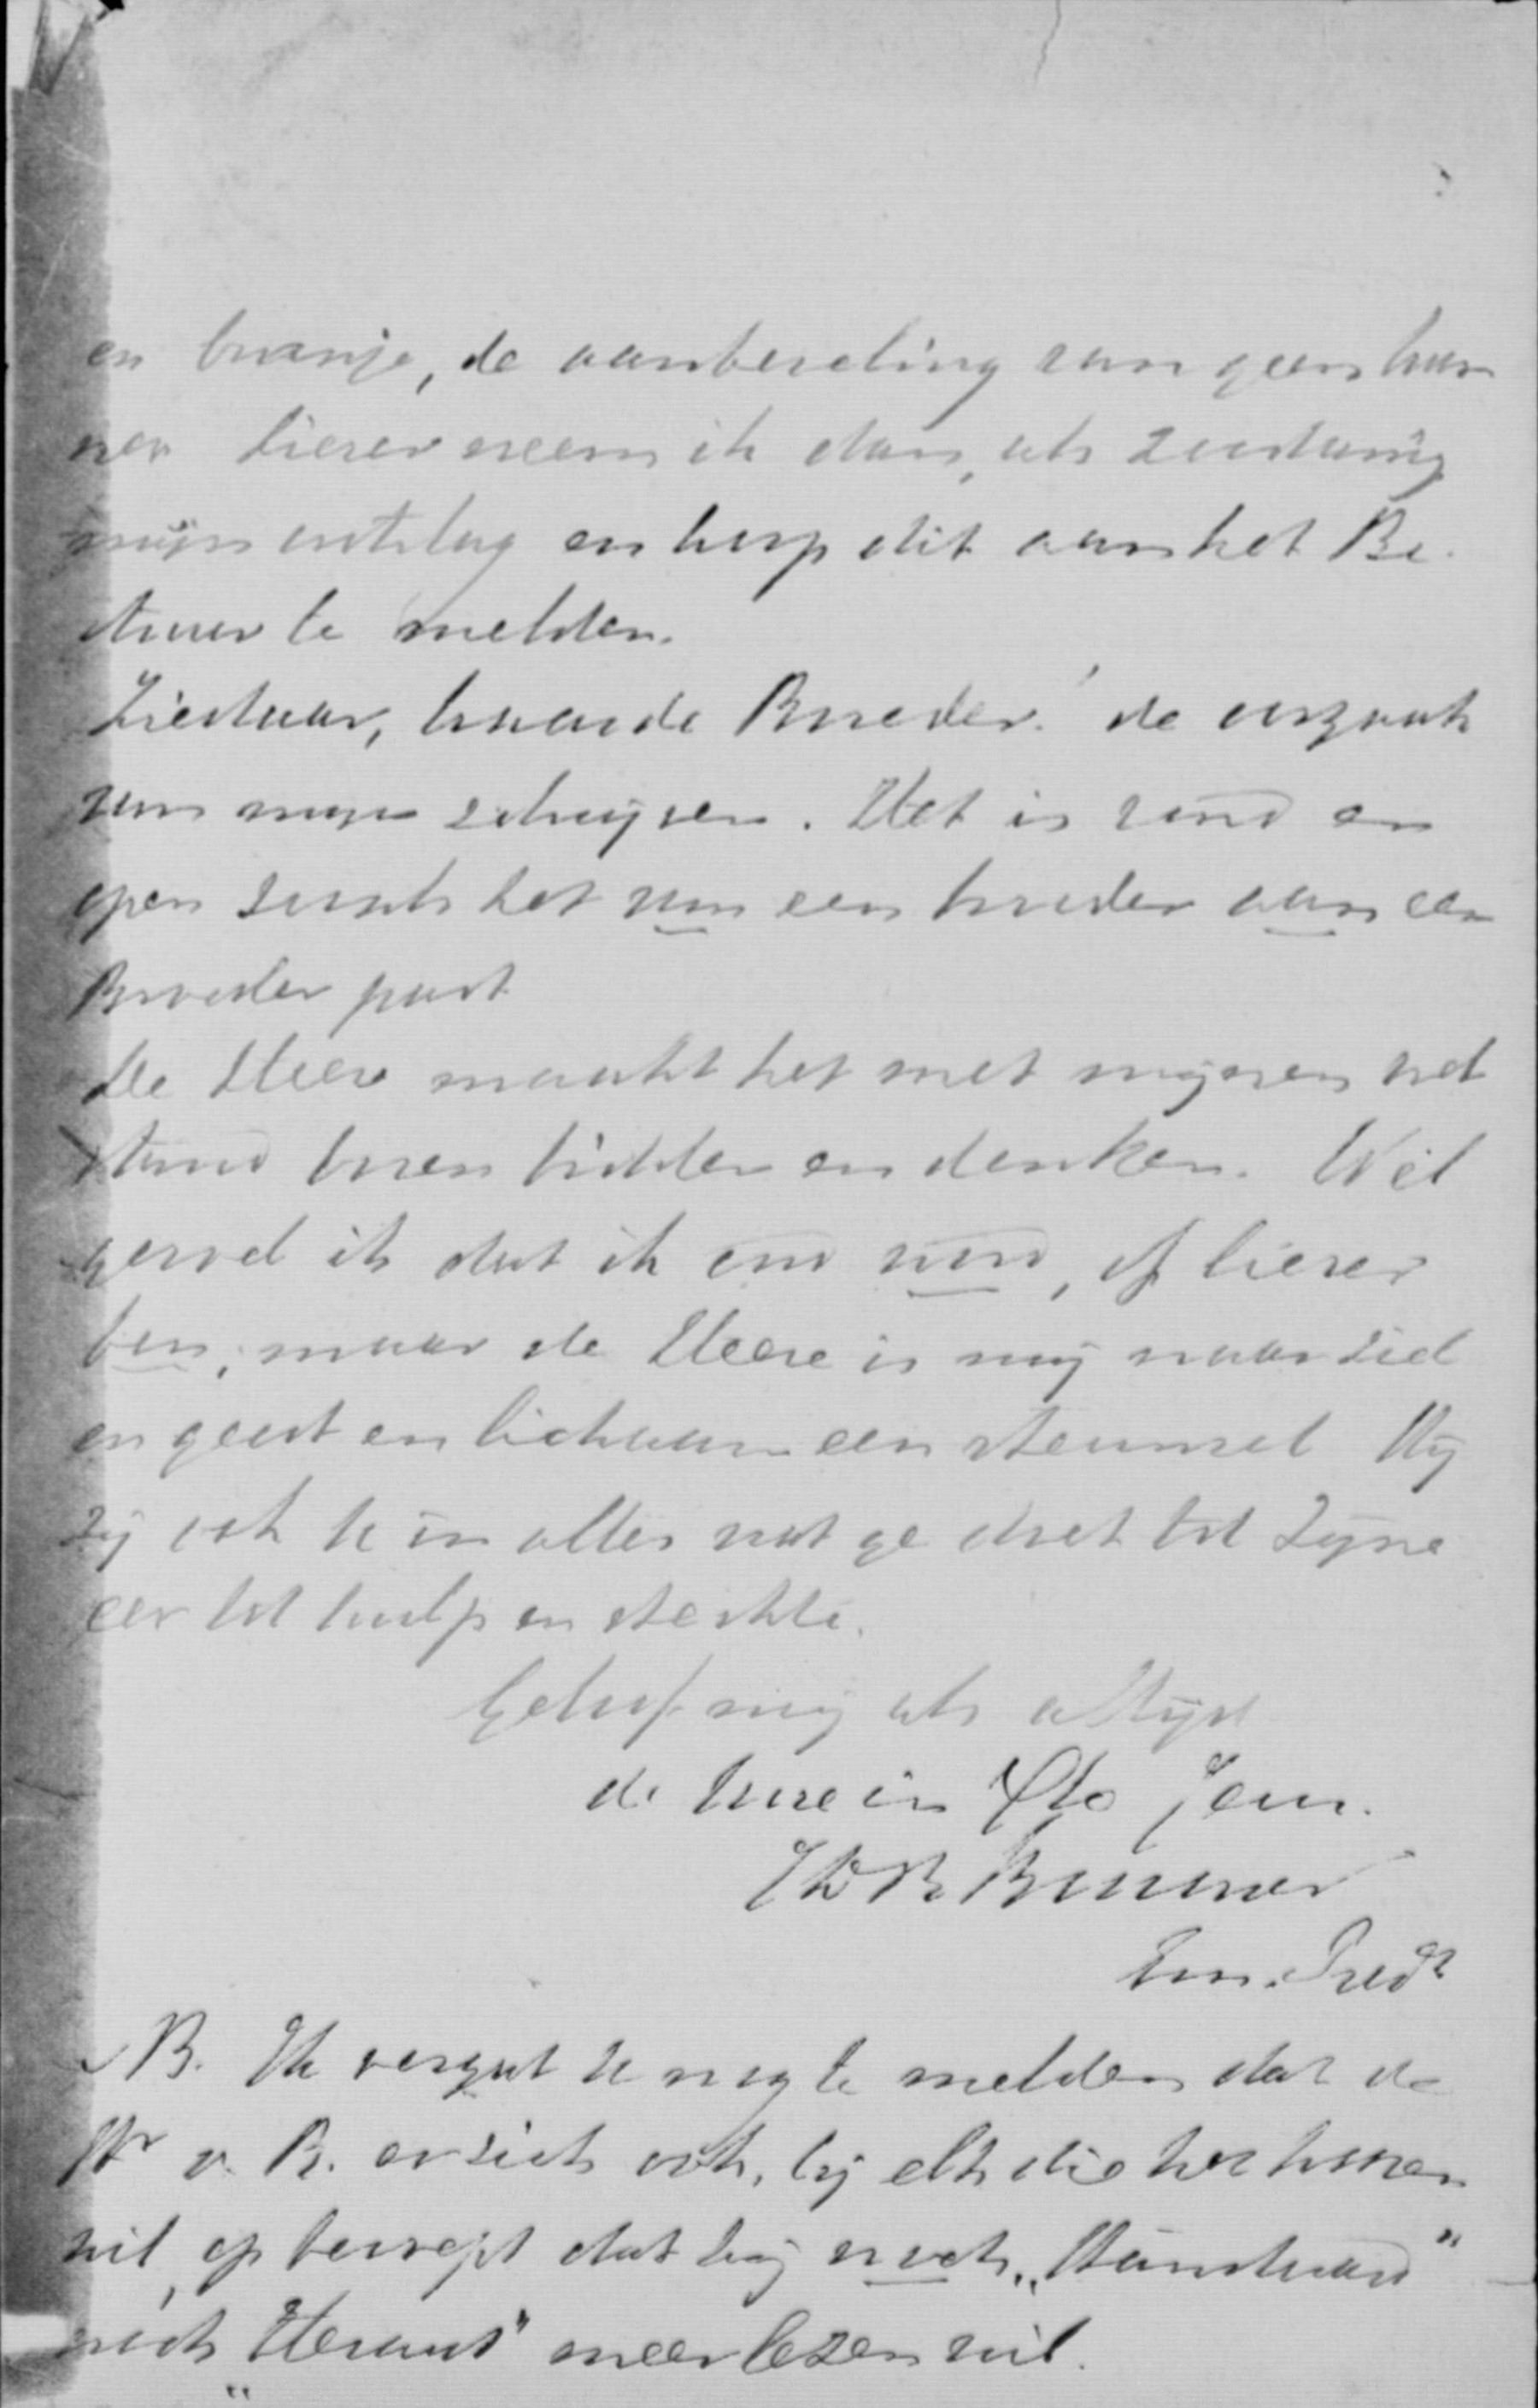 en oranje, de aanbeveling van geen ham
mer. Liever neem ik dan, als zoodanig
mijn ontslag en hoop dit aan het Be-
stuur te melden.
Ziedaar, waarde Broeder! de oorzaak
van mijn schrijven. Het is rond en
open zooals het van een broeder aan een
Broeder past
De Heere maakt het met mijnen toe
stand boven bidden en denken. Wel
gevoel ik dat ik oud word, of liever
ben, maar de Heere is mij naar ziel
en geest en lichaam een steunsel Hij
zij ook U in alles wat ge doet tot Zijne
eer tot hulp en sterkte.
Geloof mij als altijd
de Uwe in Cho Jesu.
Em. Predt
NB. Ik vergat U nog te melden dat de
Hr v. B. er zich ook, bij elk die het hooren
wil, op beroept dat hij noch „Standaard"
noch „Heraut" meer lezen wil.